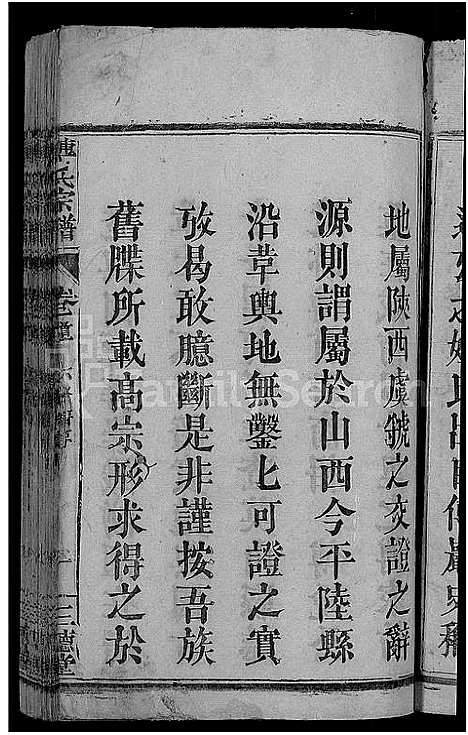 地屬陝西虞虢之交證之辭
源則謂屬於山西今平陸縣
沿革輿地無鑿匕可證之實
攷曷敢臆斷是非謹按吾族
舊牒所載高宗形求得之於
氏宗譜
三德堂